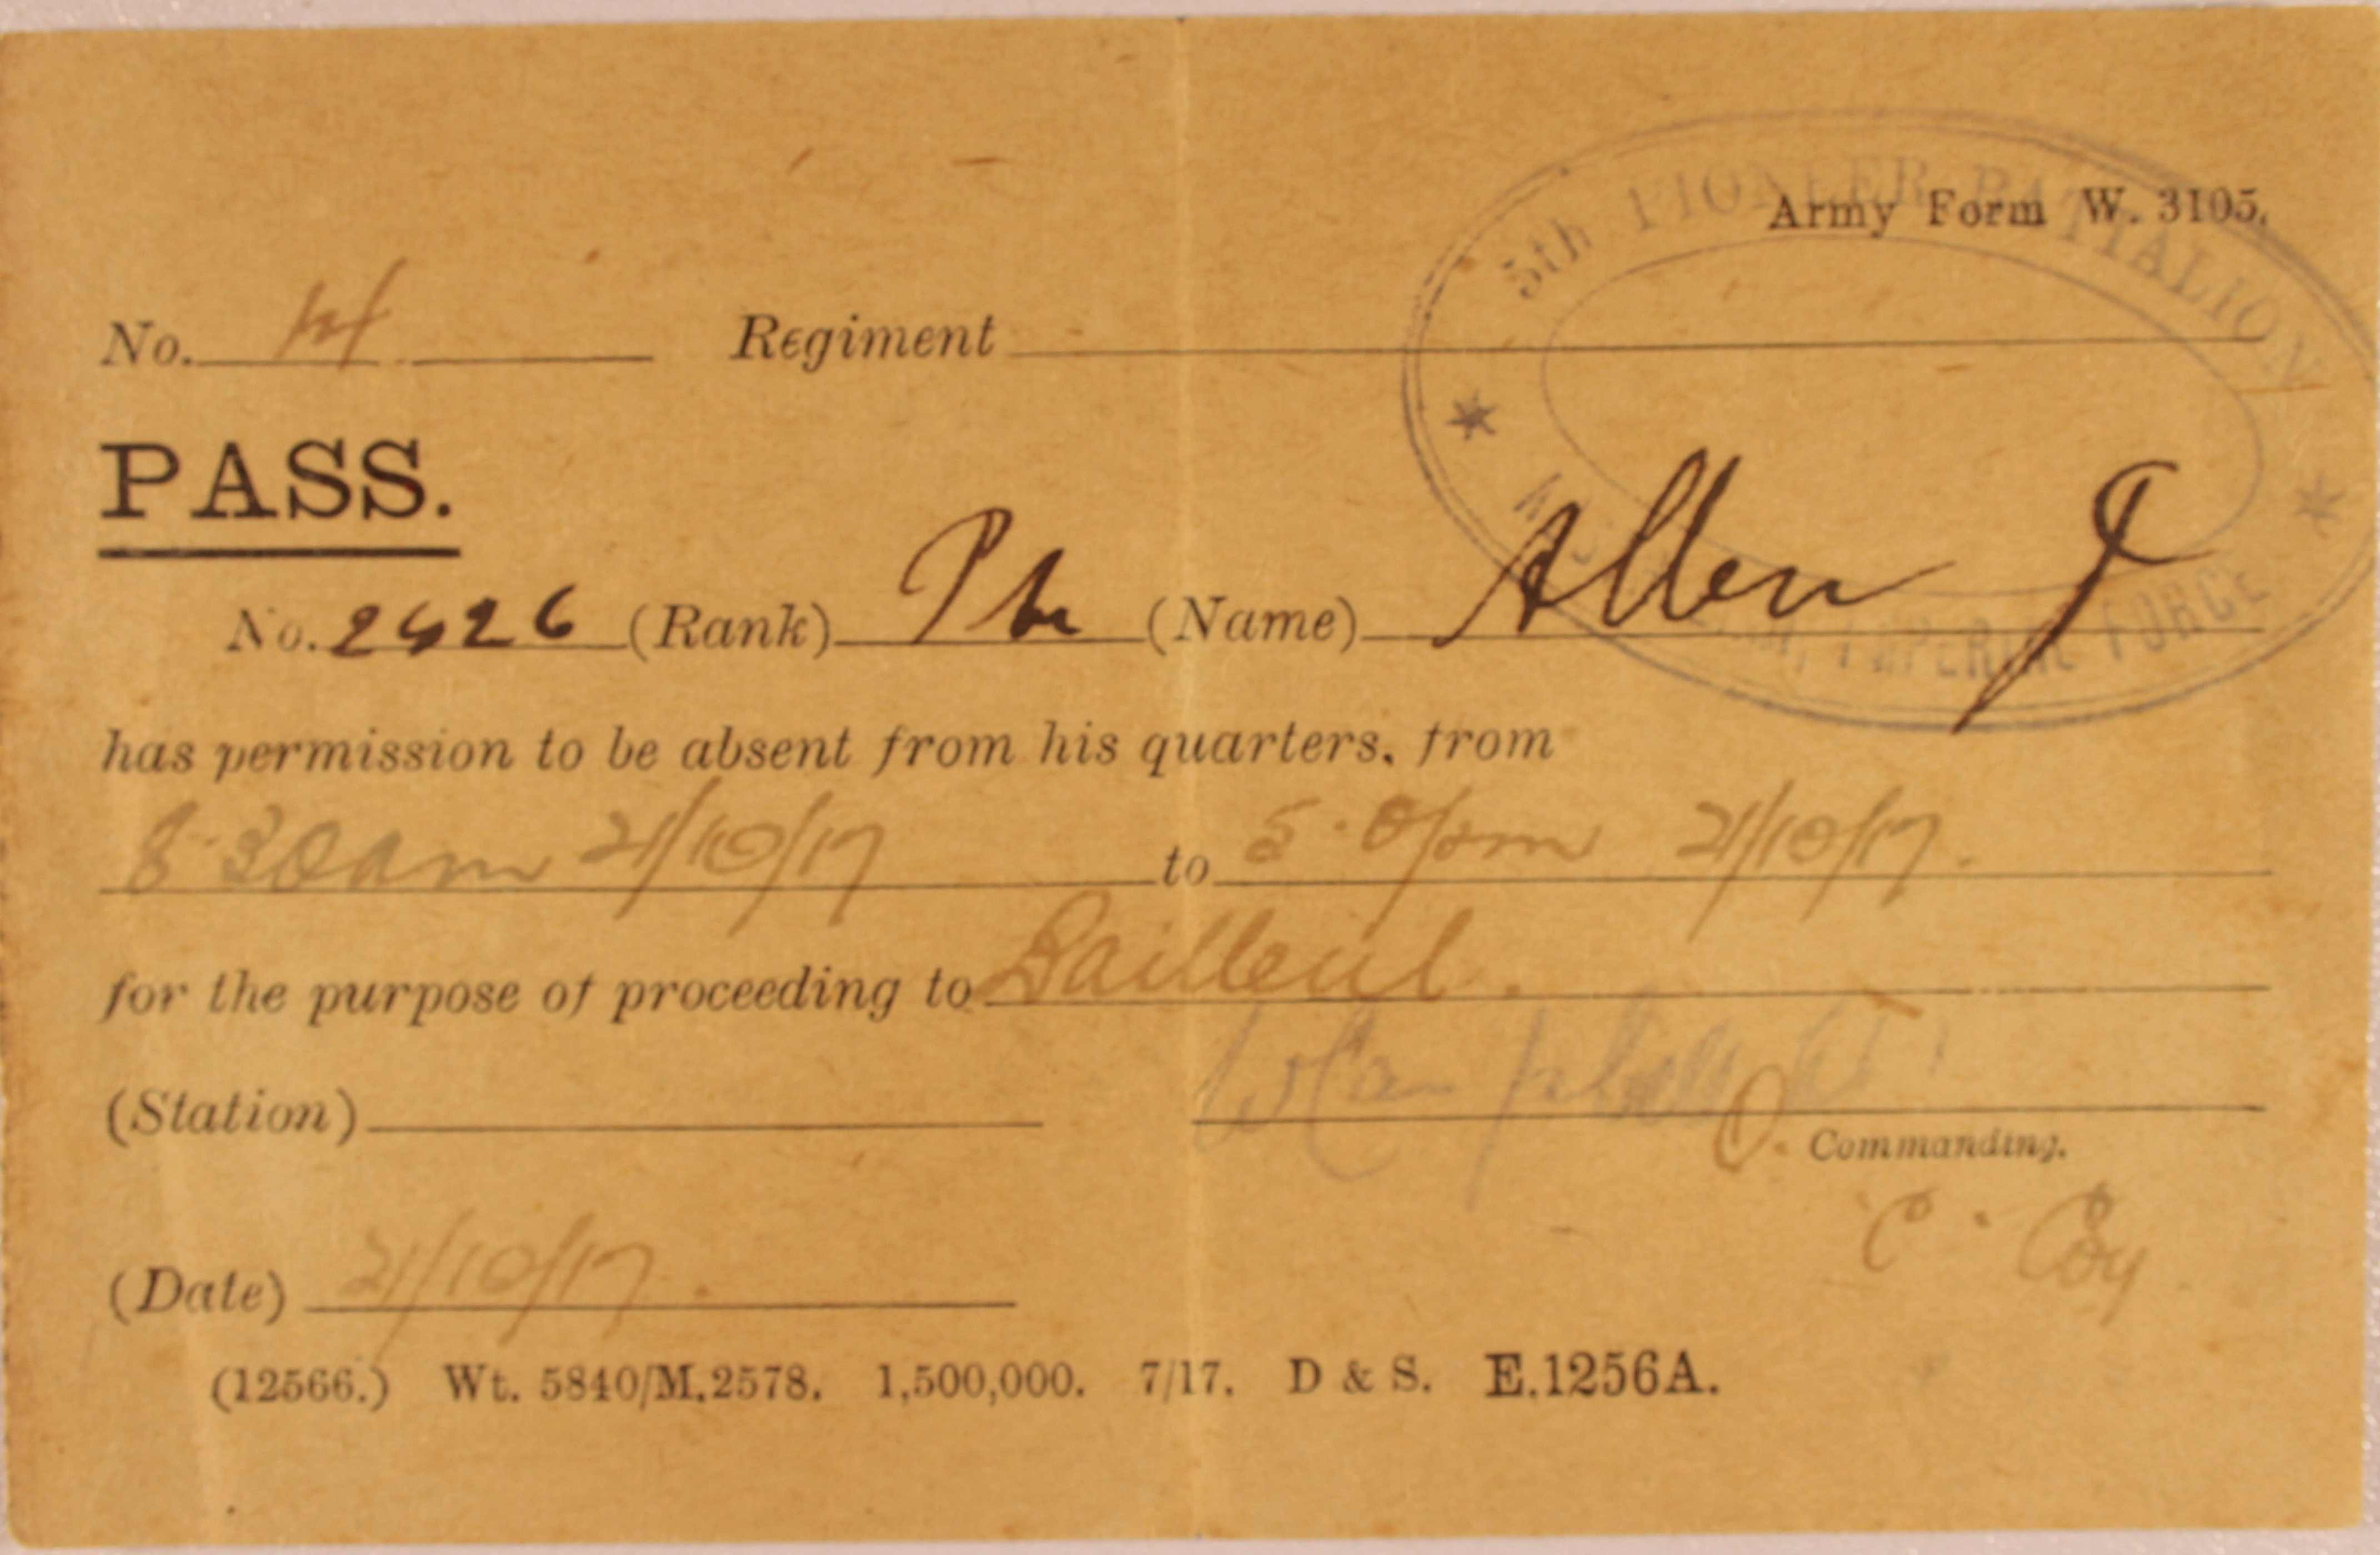 5th PIONEER BATTALION
Army Form W. 3105.
No. 14 Regiment
PASS.
No. 2426 (Rank) Pte (Name) Allen J
IMPERIAL FORCE
has permission to be absent from his quarters, from
8.30am 21/10/17 to 5.0pm 21/10/17.
for the purpose of proceeding to Bailleul.
(Station)
O. Commanding.
C. Coy
(Date) 21/10/17.
(12566.) Wt. 5840/M.2578. 1,500,000. 7/17. D & S. E.1256A.